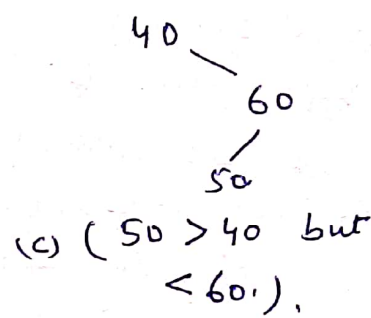 40
60
50
(c) ( 50 > 40 but
< 60.).